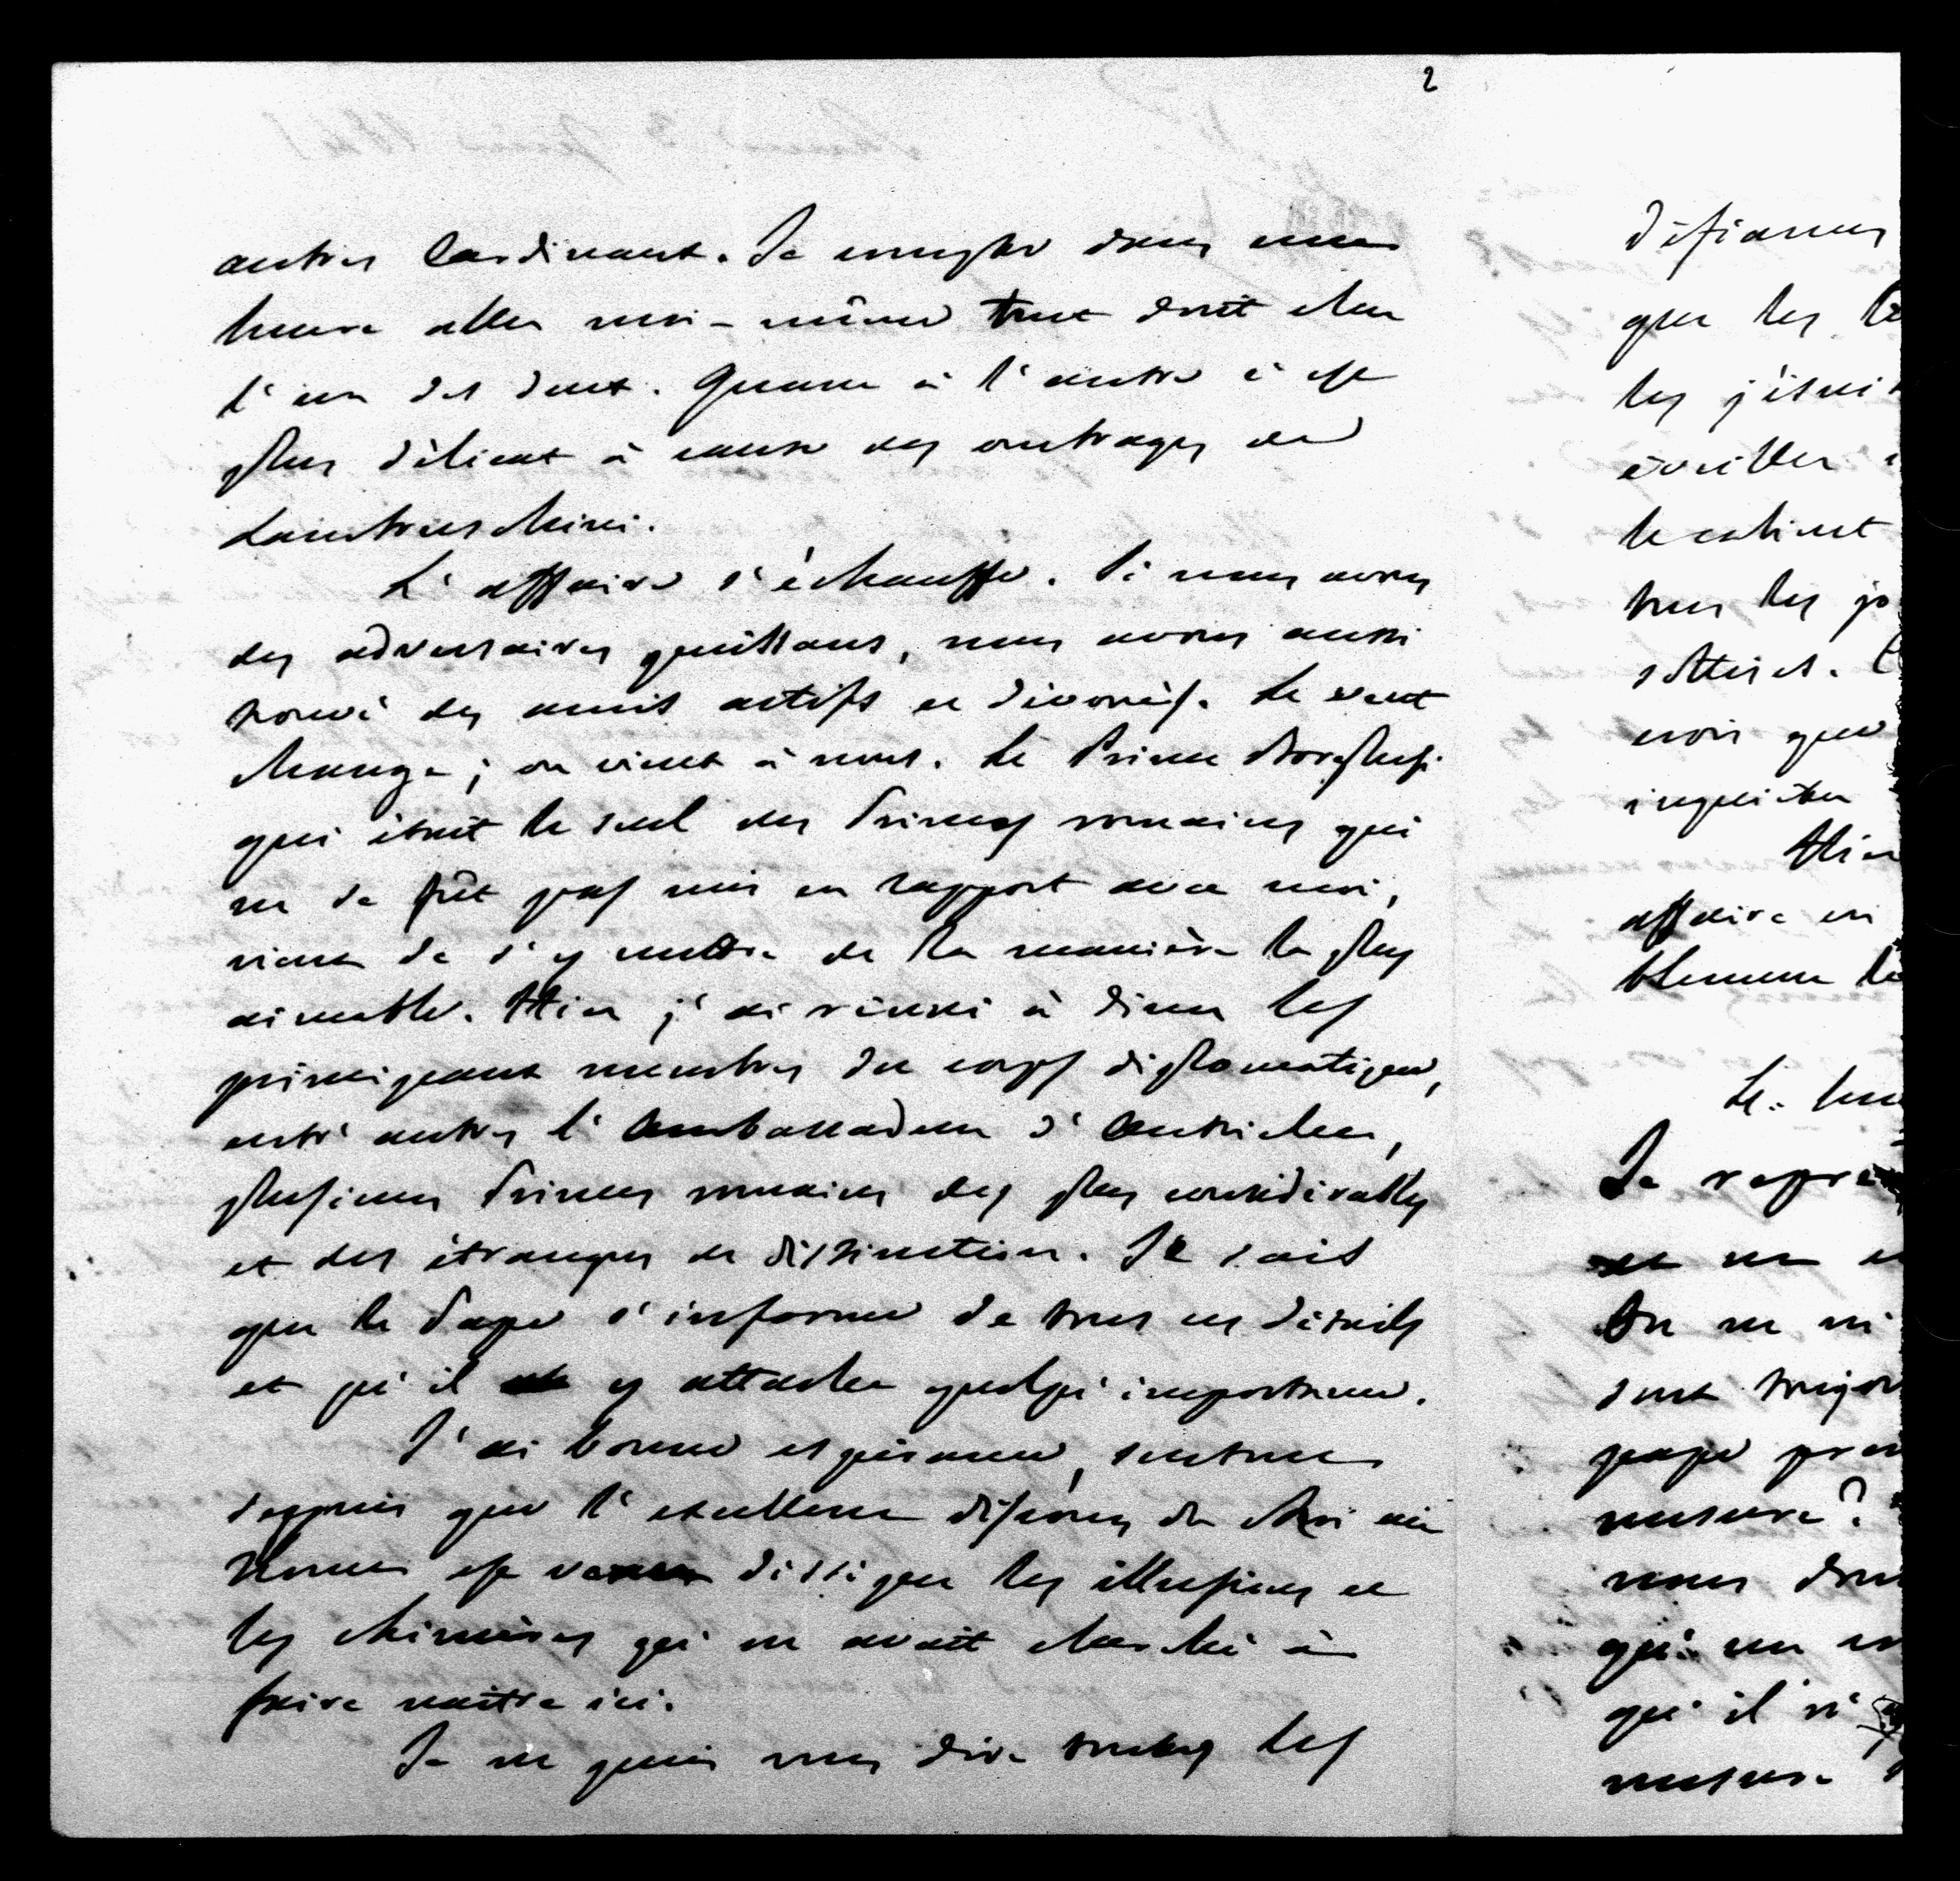 2
autres Cardinaux. Je compte dans une
heure aller moi-même tout droit chez
l'un des deux. Quant à l'autre c'est
plus délicat à cause des outrages de
Lambruschini.
L'affaire s'échauffe. Si nous avons
des adversaires puissans, nous avons aussi
trouvé des amis actifs et dévoués. Le vent
change; on vient à nous. Le Prince Borghese
qui était le seul des Princes romains qui
ne se fût pas mis en rapport avec moi,
vient de s'y mettre de la manière la plus
aimable. Hier j'ai réuni à diner les
principaux membres du corps diplomatique,
entr'autres l'Ambassadeur d'Autriche,
plusieurs Princes romains des plus considérables
et des étrangers de distinction. Je sais
que le Pape s'informe de tous ces détails
et qu'il y attache quelqu'importance.
J'ai bonne espérance, surtout
depuis que l'excellent discours du Roi aux
est dissiper les illusions et
les chimères qu'on avait cherché à
faire naître ici.
Je ne puis vous dire toutes les
défiances
que les
les jésui
éveiller
le cabinet
tous les jo
sottises.
crois que
inquiéter
Hier
affaire en
Le
Je repré
et ne
On ne
sont toujou
pape
mesure?
nous
qui ne
qu'il n'
mesure